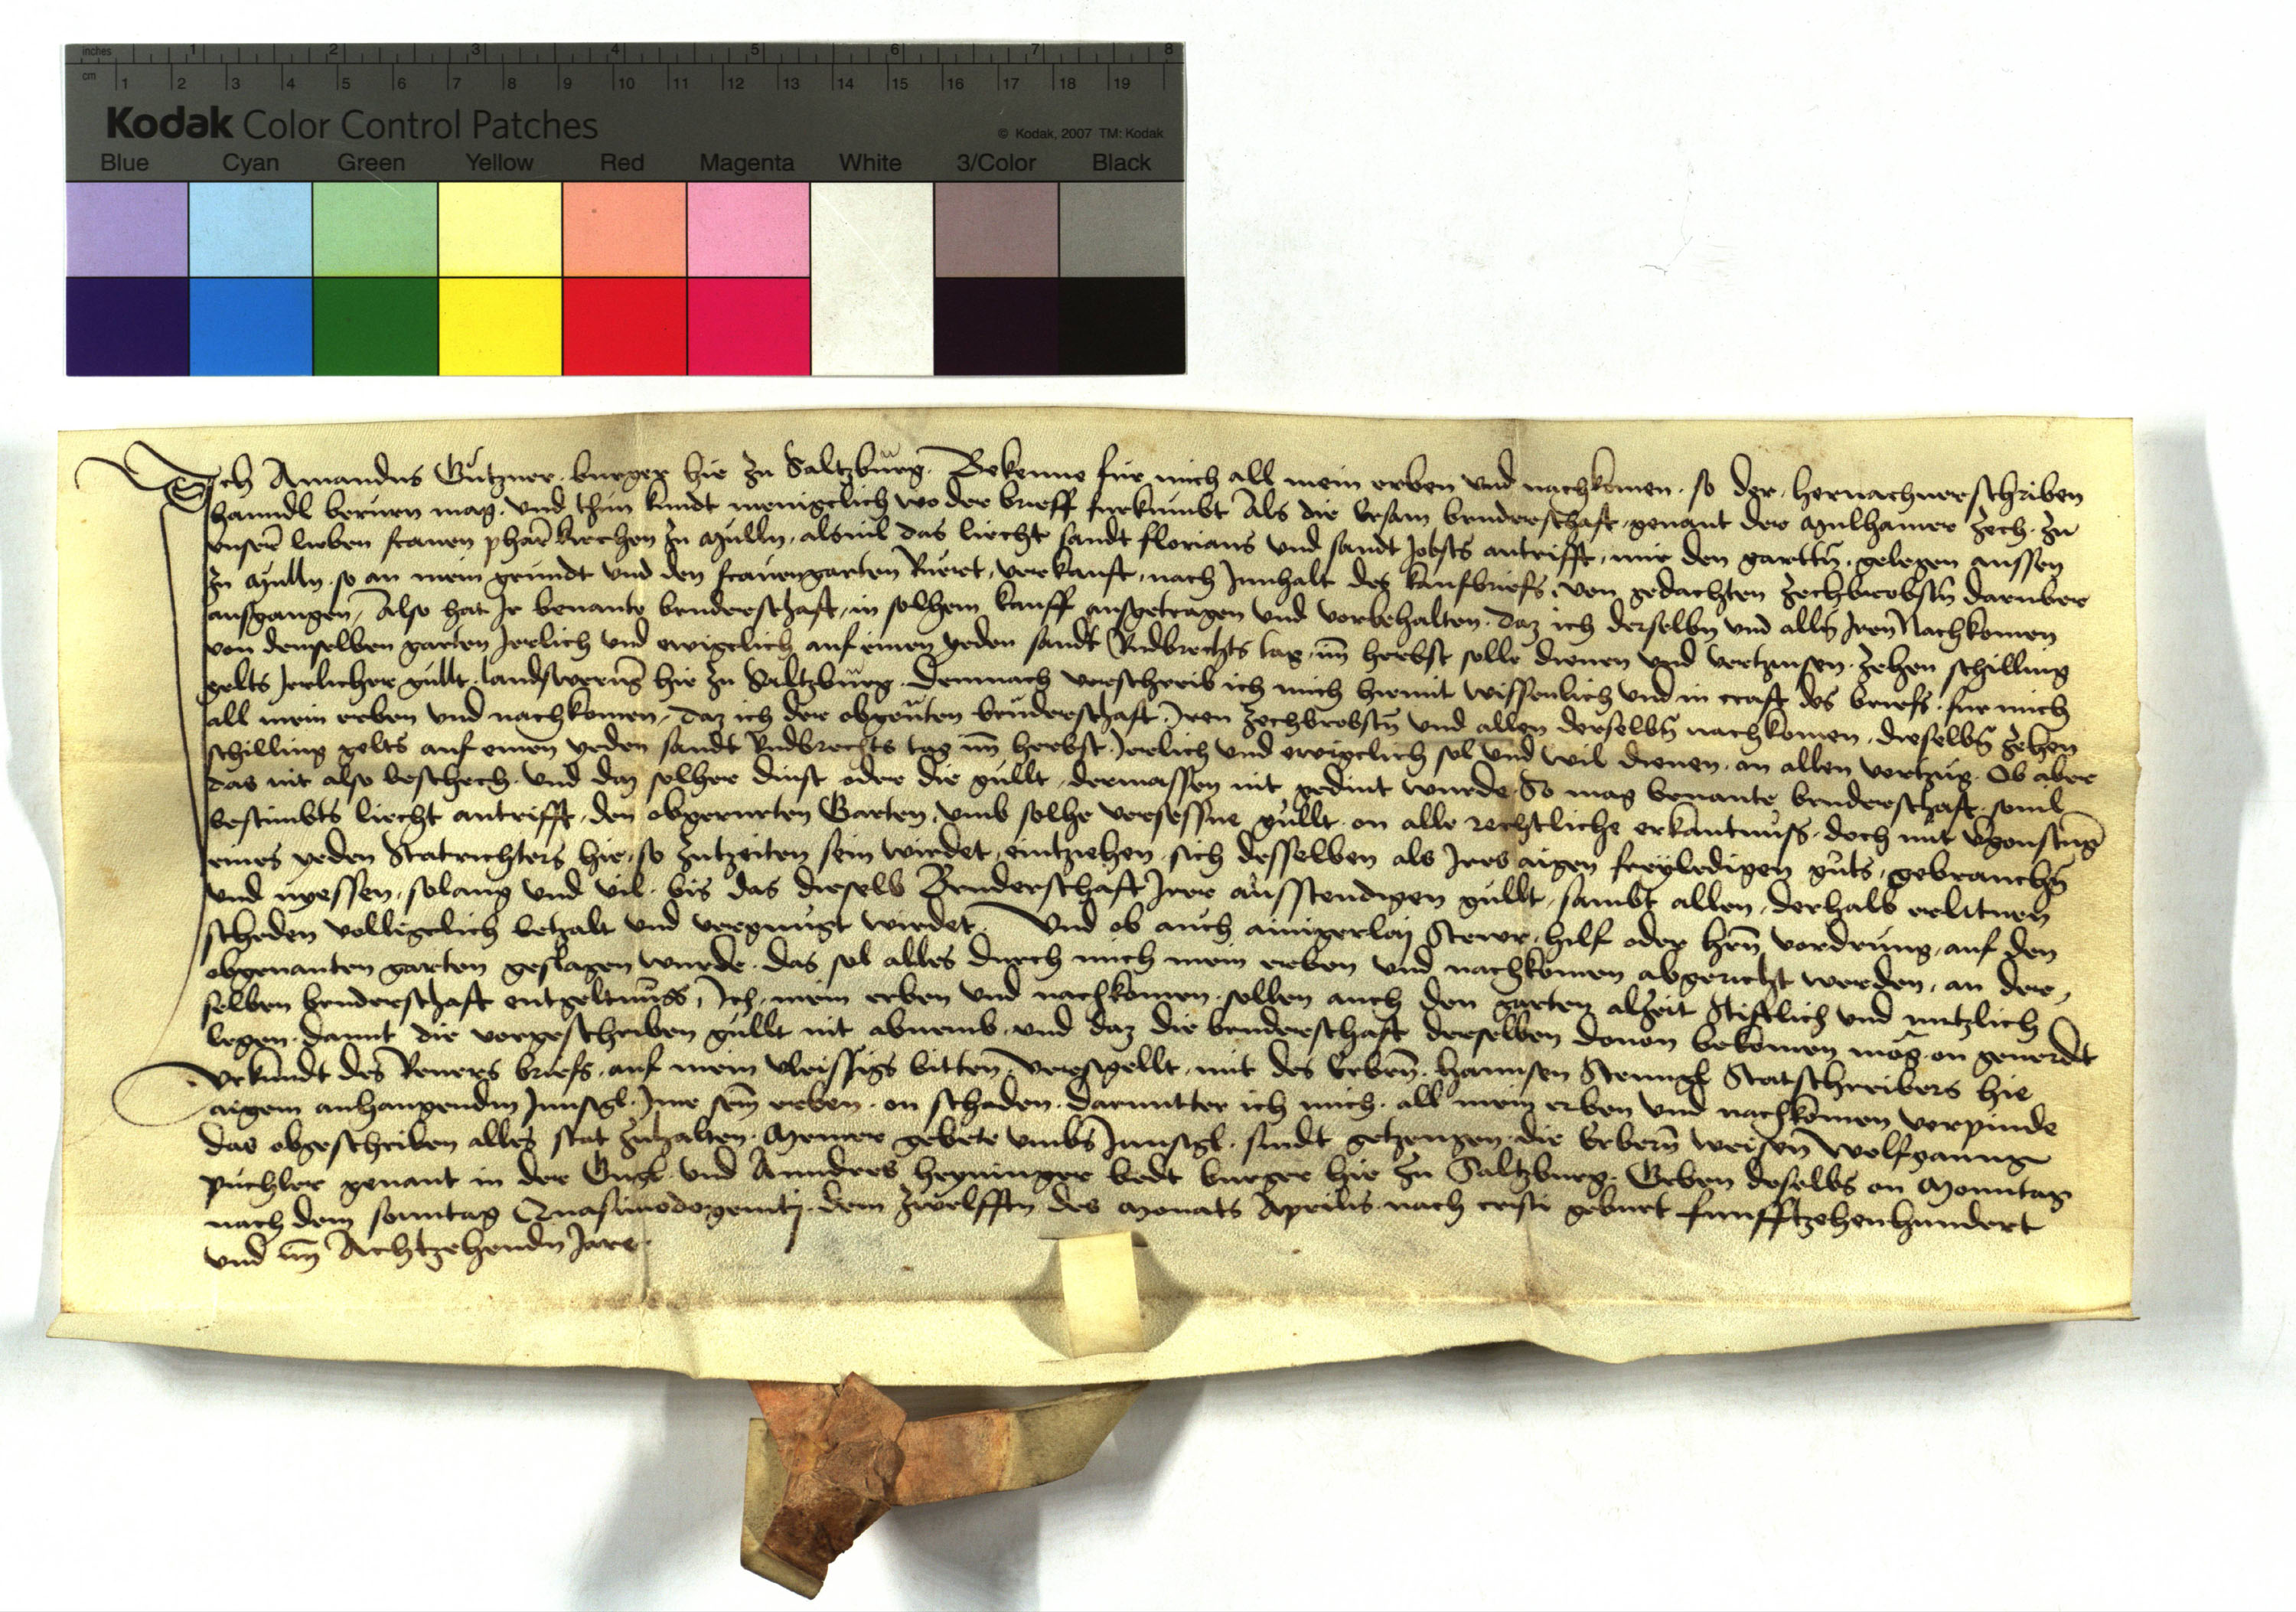 inches 1 2 3 4 5 6 7 8
cm 1 2 3 4 5 6 7 8 9 10 11 12 13 14 15 16 17 18 19
Kodak Color Control Patches © Kodak, 2007 TM: Kodak
Blue Cyan Green Yellow Red Magenta White 3/Color Black
Ich Amandus Gutzner burger hie zu Saltzburg. Bekenne fur mich all mein erben und nachkomen. so der hernachuerschriben
hanndl beruern mag. und thun kundt menigclich wo der brieff furkumbt Als die Ersam bruderschaft genant der Mulhamer zech. zu
unser lieben frauen pharkirchen zu Mulln, alsuil das liecht sandt florians und sandt Jobsts antrifft, mir den gartten gelegen aussen
zu Mulln. so an mein grundt und den frauengarten Rueret, verkauft, nach Innhalt des kaufbriefs von gedachten zechbrobstn daruber
ausgangen, Also hat Ir benante bruderschaft, in solhem kauff ausgetragen und vorbehalten. daz ich derselbn und alln Iren Nachkomen
von demselben garten Jerlich und ewigclich auf einen yeden sandt Rudbrechts tag im herbst solle dienen und vertzinsen. zehen schilling
gelts Jerlicher gullt. landswerung hie zu Saltzburg. Demnach verschreib ich mich hiemit wissenlich und in craft des briefs. fur mich
all mein erben und nachkomen, daz ich der obgenten bruderschaft Iren zechbrobstn und allen derselbn nachkomen. dieselbn zehen
schilling gelts auf einen yeden sandt Rudbrechts tag im herbst. Jerlich und ewigclich sol und wil dienen. an allen vertzug. Ob aber
das nit also beschech. und daz solher dinst oder die gullt, dermassen nit gedint wurde. So mag benante bruderschaft. souil
bestimbts liecht antrifft, den obgerurten Garten, umb solhe versessne gullt. on alle rechtliche erkantnuss. doch mit vergonstung
eines yeden Statrichters hie, so zutzeiten sein wirdet, eintziehen, sich desselben als Irs aigen freyledigen guts, gebrauchn
und niessen, solang und vil. bis das dieselb Bruderschaft Irer ausstendigen gullt, sambt allen, derhalb erlitnen
scheden volligclich betzalt und vergnugt wirdet. Und ob auch ainigerley Stewr, hilf oder hern vordrung, auf den
obgenanten garten geslagen wurde. das sol alles durch mich mein erben und nachkomen abgericht werden, an der,
selben bruderschaft entgeltnuss, Ich, mein erben und nachkomen. sollen auch den garten alzeit Stiftlich und nutzlich
legen. damit die vorgeschriben gullt nit abnemb. und daz die bruderschaft derselben dauon bekomen mög. on geuerdt
Urkundt des Reuers briefs. auf mein vleissigs bitten versigellt, mit des Erbern. hannsen Statschreibers hie
aigem anhangendm Innsigl. Ime sein erben. on schaden. darunntter ich mich. all mein erben und nachkomen verpinde
das obgeschriben alles stat zuhalten. Meiner gebete umbs Innsigl. sindt getzeugen die Erbern weisen Wolfganng
puchler genant in der Engl. und Anndres heyninger bedt burger hie zu Saltzburg. Geben doselbs on Monntag
nach dem sonntag Quasimodogeniti. dem zwelfften des monats Aprilis nach cristi geburt funfftzehenhundert
und im Achtzehendn Jare.